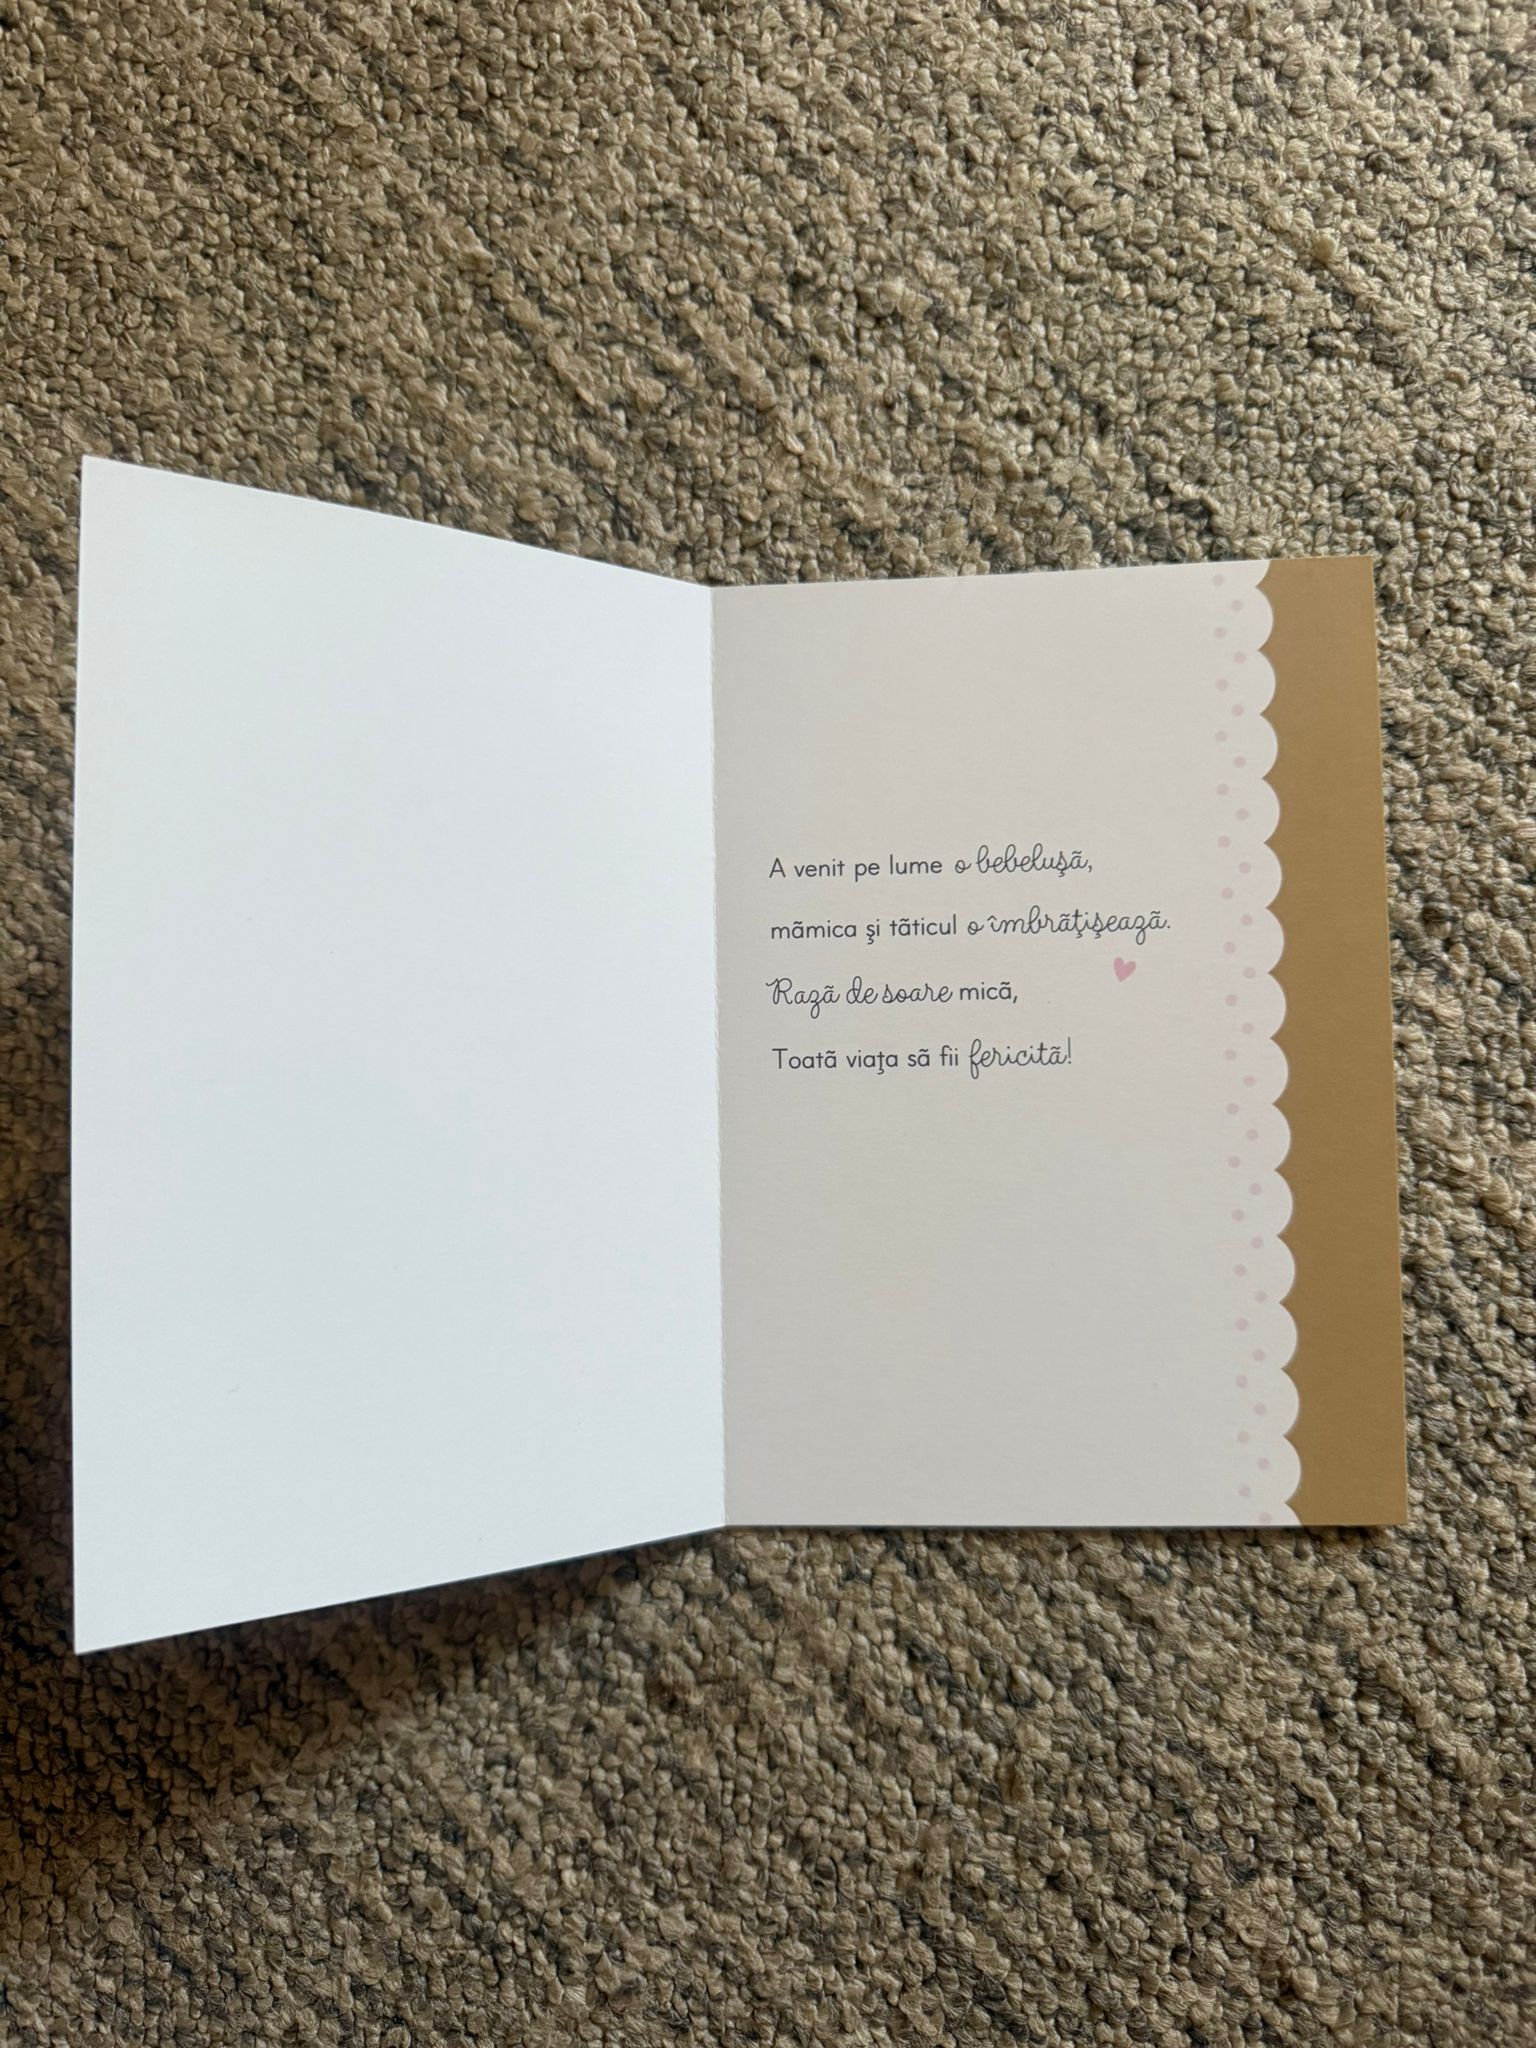 A venit pe lume o bebeluşã,
mãmica şi tãticul o îmbrãţişeazã.
Razã de soare micã,
Toatã viaţa sã fii fericitã!